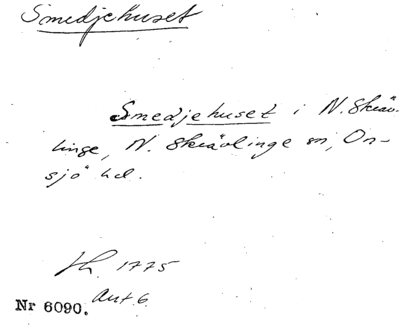 Smedjehuset
Smedjehuset i N. Skräv-
linge, N. Skrävlinge sn, On-
sjö hd.
Lh. 1775
Ant 6.
Nr 6090.